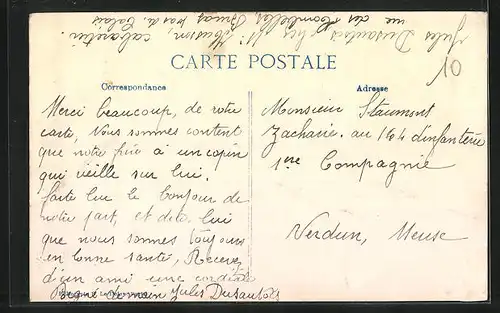 Jules Dusautois chez Mr Houson, cabaretier.
rue des Hombelles, Bruay pas de Calais
CARTE POSTALE
10
Correspondance
Adresse
Merci beaucoup, de votre
carte, Nous sommes content
que notre frère a un copin
qui vieille sur lui.
faite lui le bonjour de
notre part, et dite lui
que nous sommes toujours
en bonne santé, Recevez
d'un ami une cordiale
Poigné de main Jules Dusautois
Monsieur Staumont
Zacharie. au 164 d'infanterie
1ere Compagnie
Verdun, Meuse